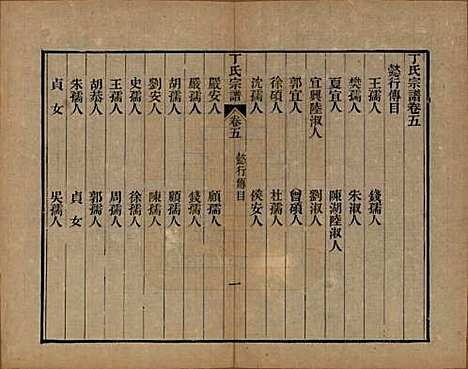 丁氏宗譜卷五
懿行傳目
王孺人 錢孺人
樊孺人 朱淑人
夏宜人 陳湖陸淑人
宜興陸淑人 劉淑人
郭宜人 曾碩人
徐碩人 杜孺人
沈孺人 侯安人
丁氏宗譜 卷五 懿行傳目 一
嚴安人 顧孺人
嚴孺人 錢孺人
胡孺人 顧孺人
劉安人 陳孺人
史孺人 徐孺人
王孺人 周孺人
胡恭人 郭孺人
朱孺人 貞女
貞女 吳孺人